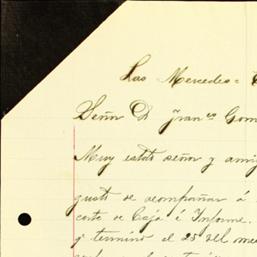 Las Mercedes=
Señor D Franco Gom
Muy estdo señor y amig
gusto de acompañar á
corte de Caja é Informe.
y terminó el 25 del me